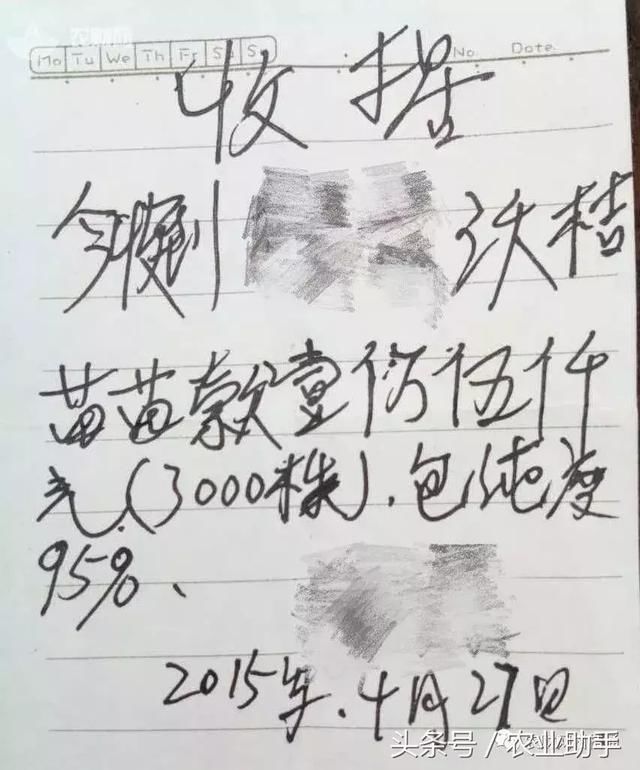 Mo Tu We Th Fr Sa Su No. Date.
收据
今收到 沃桔
苗苗款壹仿伍仟
元(3000株).包纯度
95%、
2015年.4月27日
头条号／农业助手